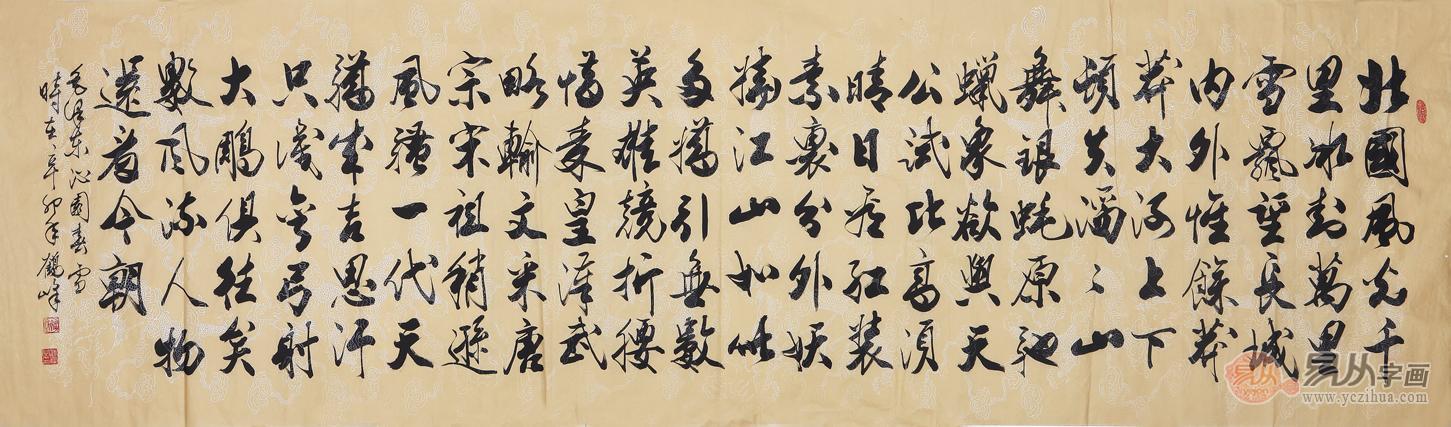 北國風光千
里冰封萬里
雪飄望長城
内外惟餘莽
莽大河上下
頓失滔〻山
舞銀蛇原馳
蠟象欲與天
公試比高須
晴日看紅裝
素裹分外妖
嬈江山如此
多嬌引無數
英雄競折腰
惜秦皇漢武
略輸文采唐
宗宋祖稍遜
風騷一代天
驕成吉思汗
只識彎弓射
大鵰俱往矣
數風流人物
還看今朝
毛澤東沁園春雪
時在辛卯年
易从字画
www.yczihua.com